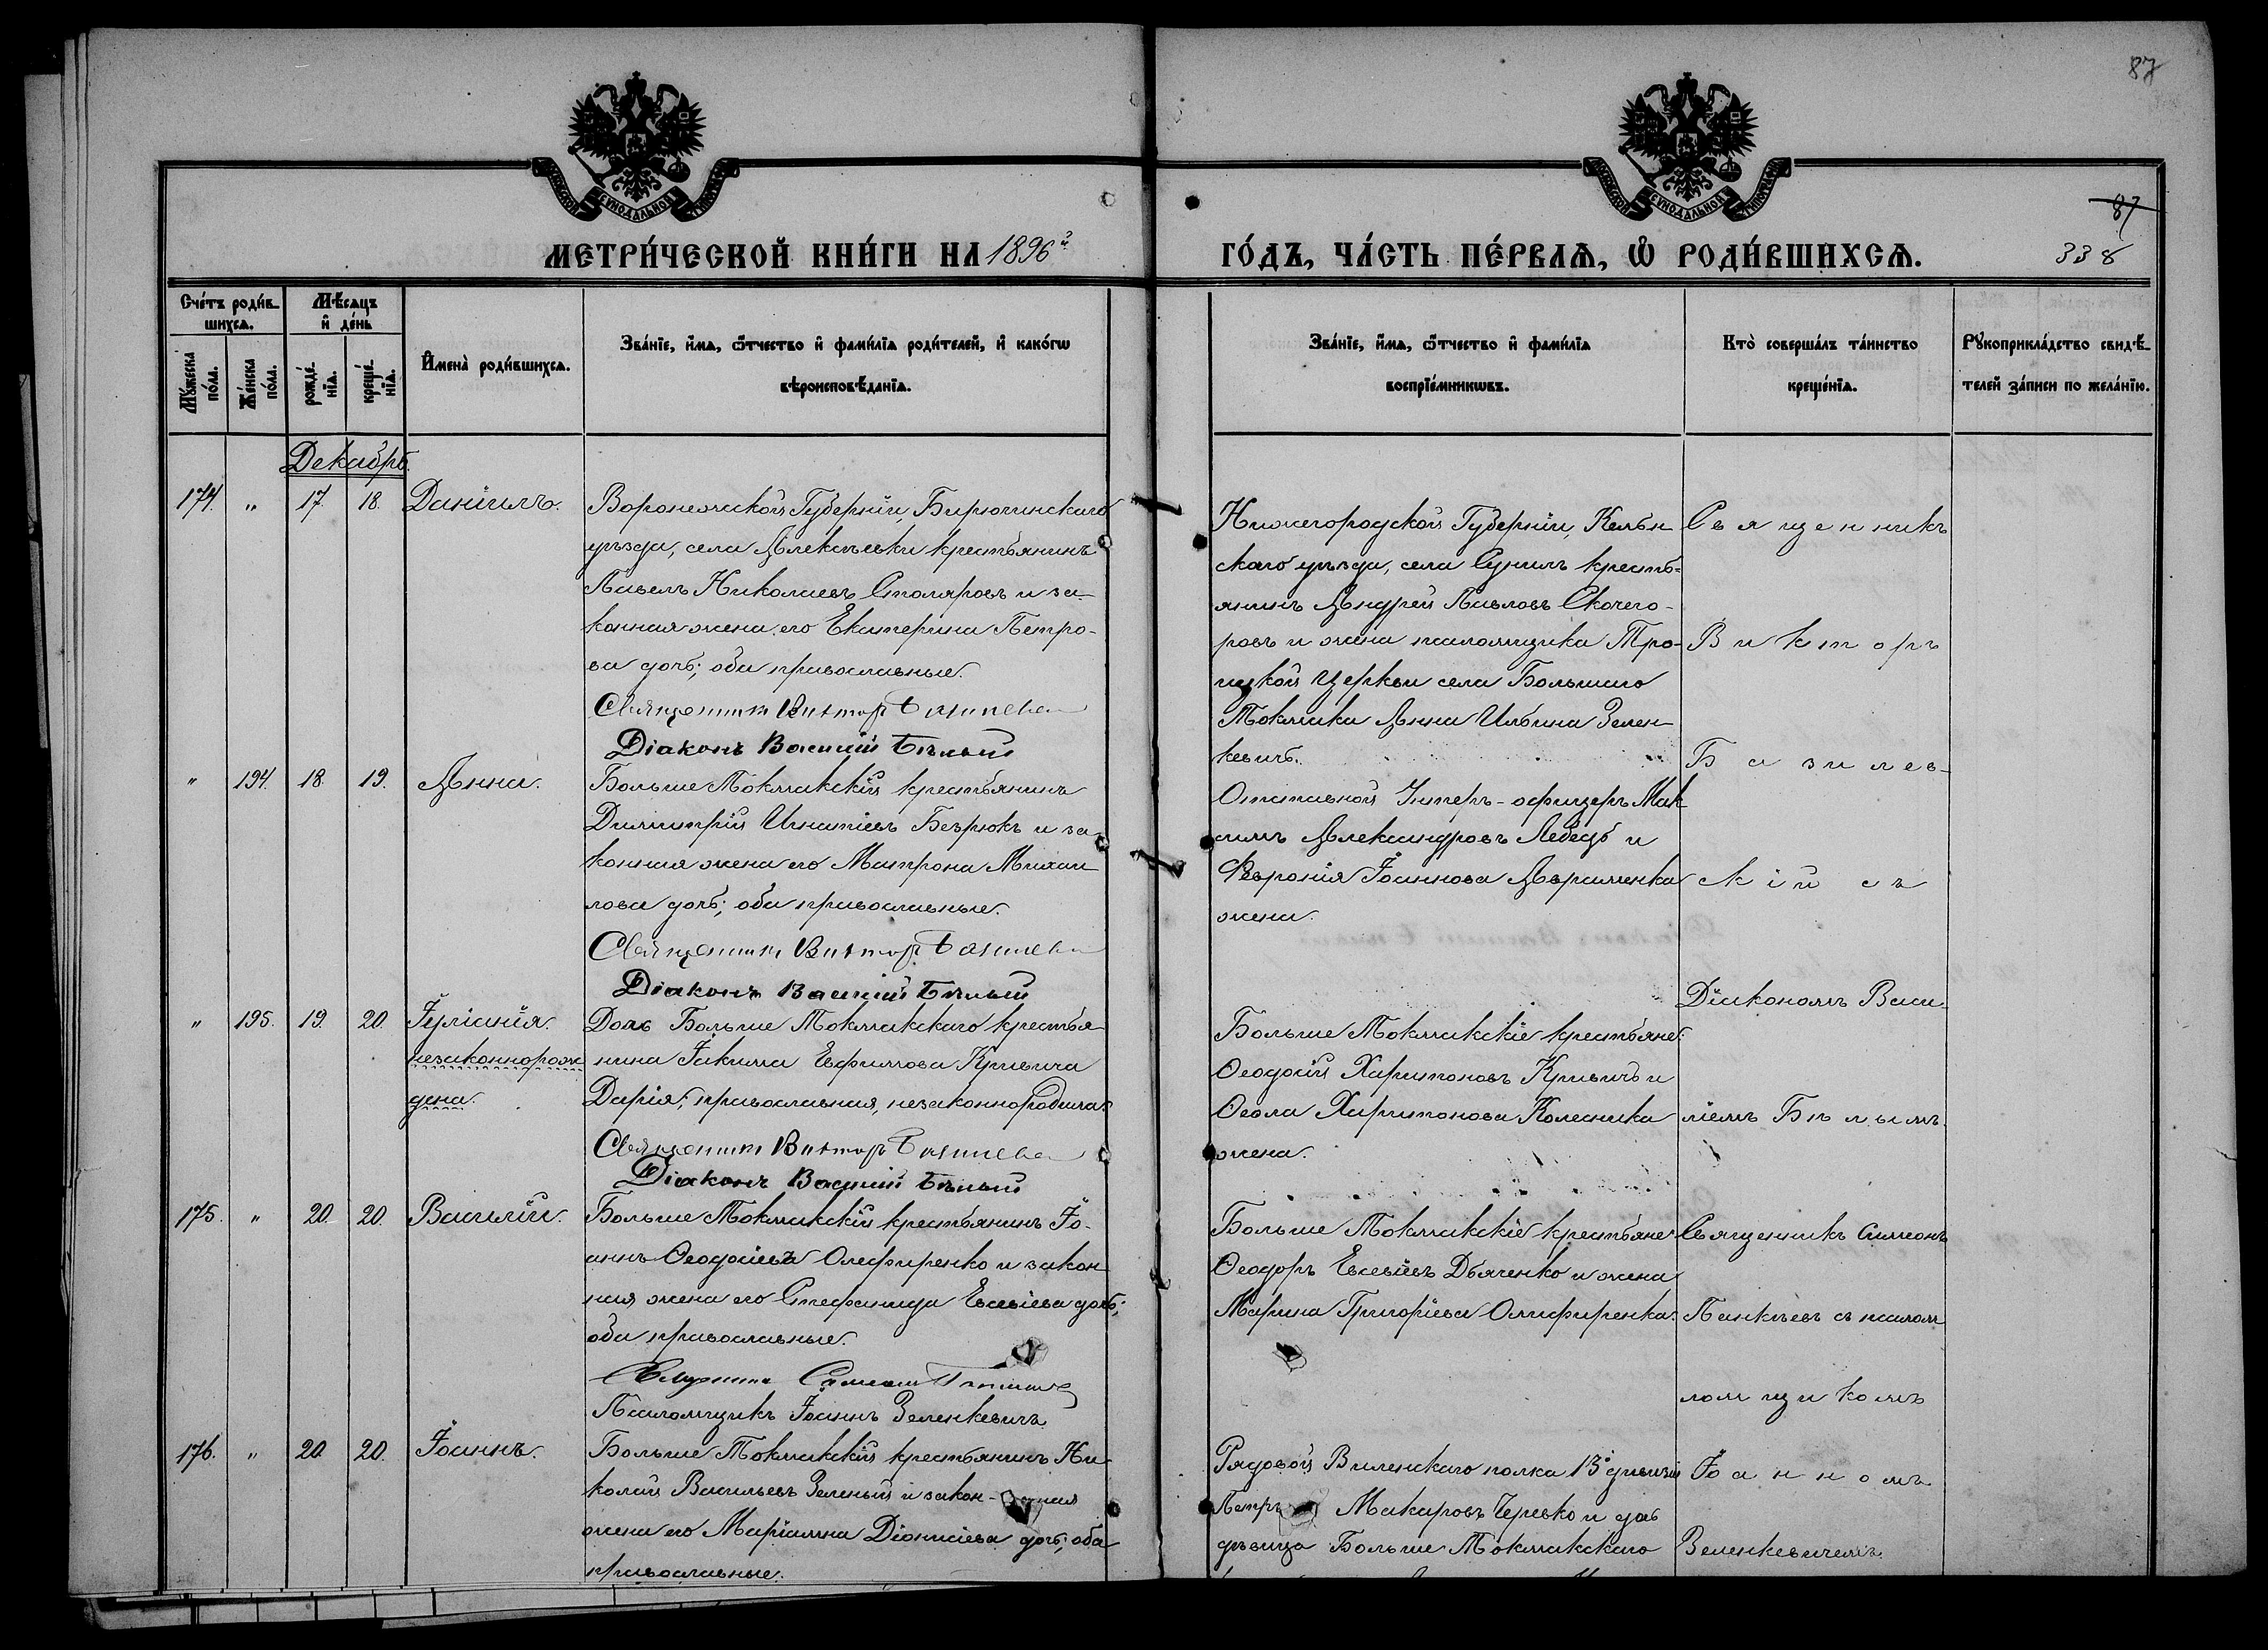 87
87
338
МЕТРИ́ЧЕСКОЙ КНИ́ГИ НА 1896й
ГО́ДЪ, ЧА́СТЬ ПЕ́РВАѦ, Ѡ РОДИ́ВШИХСѦ.
Сче́тъ роди́в-
шихсѧ.
Мѣ́сѧцъ
и де́нь
Мꙋ́жеска
по́ла.
Же́нска
по́ла.
рожде́-
нїѧ.
креще́-
нїѧ.
Имена̀ роди́вшихсѧ.
Зва́нїе, и́мѧ, ѻ́тчество и фами́лїѧ роди́телей, и како́гѡ
вѣроисповѣ́данїѧ.
Зва́нїе, и́мѧ, ѻ́тчество и фами́лїѧ
воспрїе́мникѡвъ.
Кто̀ соверша́лъ та́инство
креще́нїѧ.
Рꙋкоприкла́дство свидѣ́-
телей за́писи по жела́нїю.
Декабрь.
174. " 17. 18. Данiилъ.
Воронежской Губернiи, Бирючинскаго
уѣзда, села Алексѣевки крестьянинъ
Павелъ Николаевъ Столяровъ и за-
конная жена его Екатерина Петро-
ва дочь; оба православные.
Священникъ Викторъ Базилев
Дiаконъ Василiй Бѣлый
Нижегородской Губернiи,
скаго уѣзда, села кресть-
янинъ Андрей Павловъ
ровъ и жена псаломщика Тро-
ицкой Церкви села Большаго
Токмака Анна Ильина Зелен-
кевичъ.
Священникъ
Викторъ
Базилев-
" 194. 18. 19. Анна.
Больше Токмакскiй крестьянинъ
Димитрiй Игнатiевъ Безрюкъ и за-
конная жена его Матрона Михаи-
лова дочь; оба православные.
Священникъ Викторъ Базилев
Дiаконъ Василiй Бѣлый
Отставной Унтеръ-офицеръ Мак
симъ Александровъ Лебедь и
Февронiя Iоаннова Авраменка
жена.
скiй съ
Дiакономъ Васи-
" 195. 19. 20. Iулiанiя.
незаконнорож
дена.
Дочь Больше Токмакскаго крестья-
нина Iакима Евфимова Кривича
Дарiя; православная, незаконнородила.
Священникъ Викторъ Базилев
Дiаконъ Василiй Бѣлый
Больше Токмакскiе крестьяне:
Ѳеодосiй Харитоновъ Кривичъ и
Ѳекла Харитонова Колесника
жена.
лiемъ Бѣлымъ.
175. " 20. 20. Василiй.
Больше Токмакскiй крестьянинъ Iо-
аннъ Ѳеодосiевъ Олефиренко и закон
ная жена его Стефанида Евсевiева дочь;
оба православные.
Священникъ Симеонъ
Псаломщикъ Iоаннъ Зеленкевичъ
Больше Токмакскiе крестьяне:
Ѳеодоръ Евсевiевъ Дьяченко и жена
Марина Григорiева Олифиренка.
Священникъ Симеонъ
Панкѣевъ съ псалом
ломщикомъ
176. " 20. 20. Iоаннъ.
Больше Токмакскiй крестьянинъ Ни-
колай Васильевъ Зеленый и закон-ная
жена его Марiамна Дiонисiева дочь; оба
православные.
Рядовой Виленскаго полка 13й дивизiи
Петръ Макаровъ Черевко и дочь
дѣвица Больше Токмакскаго
Iоанномъ
Зеленкевичемъ.